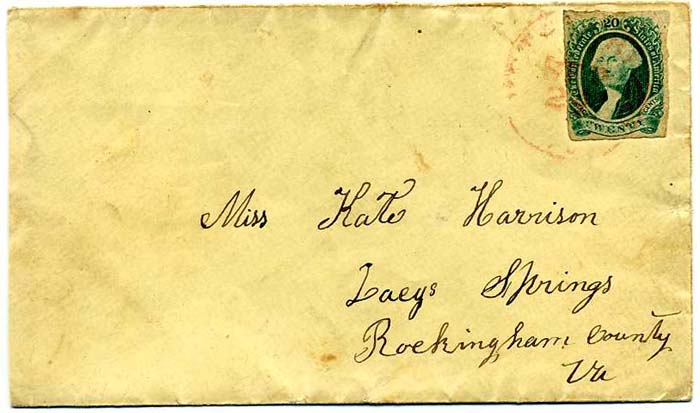 20
Confederate States of America
TWENTY
Miss Kate Harrison
Lacys Springs
Rockingham County
Va